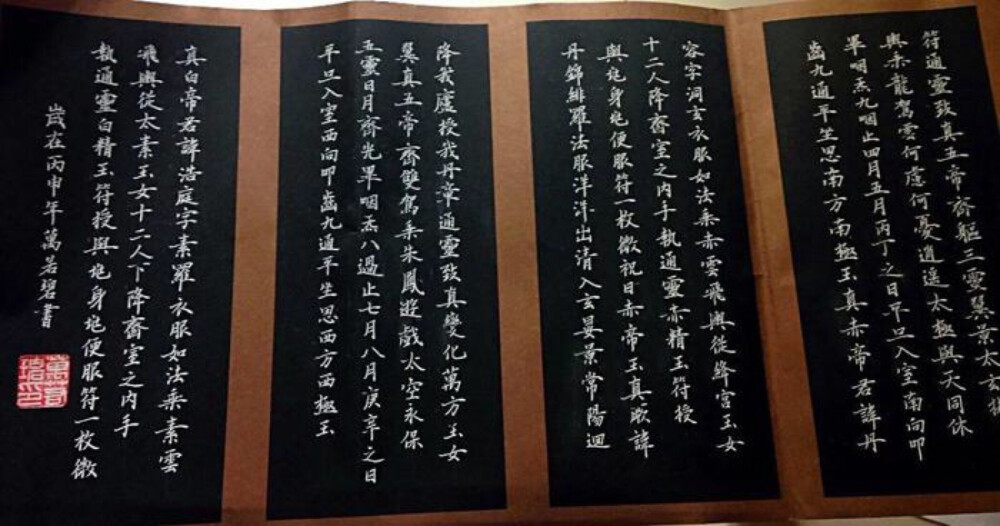 符通靈致真五帝齊軀三靈翼景太玄扶
輿乘龍駕雲何慮何憂逍遙太極與天同休
畢咽炁九咽止四月五月丙丁之日平旦入室南向叩
齒九通平坐思南方南極玉真赤帝君諱丹
容字洞玄衣服如法乘赤雲飛輿從絳宮玉女
十二人降齋室之内手執通靈赤精玉符授
與兆身兆便服符一枚微祝曰赤帝玉真厥諱
丹錦緋羅法服洋洋出清入玄晏景常陽迴
降我廬授我丹章通靈致真變化萬方玉女
翼真五帝齊雙駕乘朱鳳遊戲太空永保
五靈日月齊光畢咽炁八過止七月八月庚辛之日
平旦入室西向叩齒九通平坐思西方西極玉
真白帝君諱浩庭字素羅衣服如法乘素雲
飛輿從太素玉女十二人下降齋室之内手
執通靈白精玉符授與兆身兆便服符一枚微
歲在丙申年萬若碧書
萬若碧印